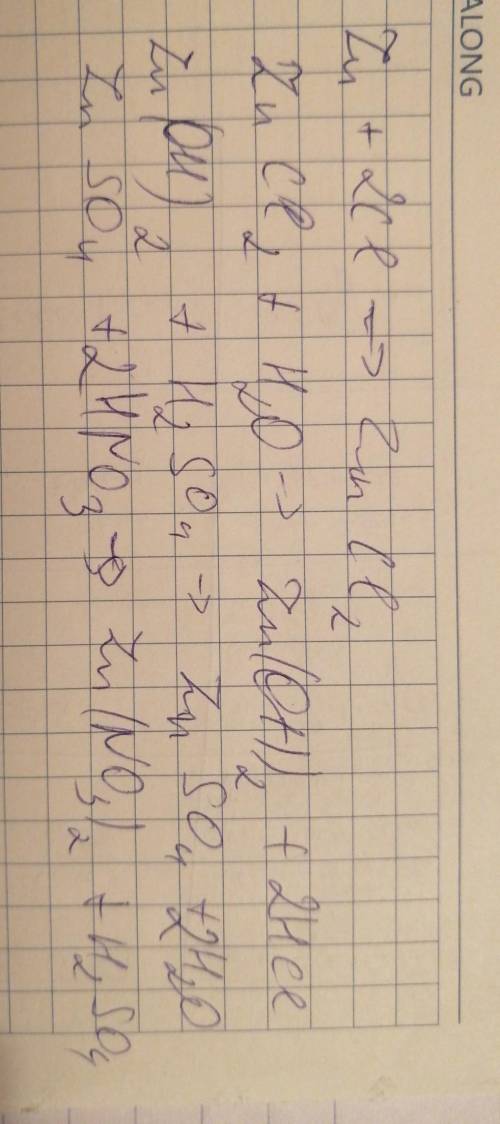 ALONG
Zn + 2Cl → ZnCl₂
ZnCl₂ + H₂O → Zn(OH)₂ + 2HCl
Zn(OH)₂ + H₂SO₄ → ZnSO₄ + 2H₂O
ZnSO₄ + 2HNO₃ → Zn(NO₃)₂ + H₂SO₄